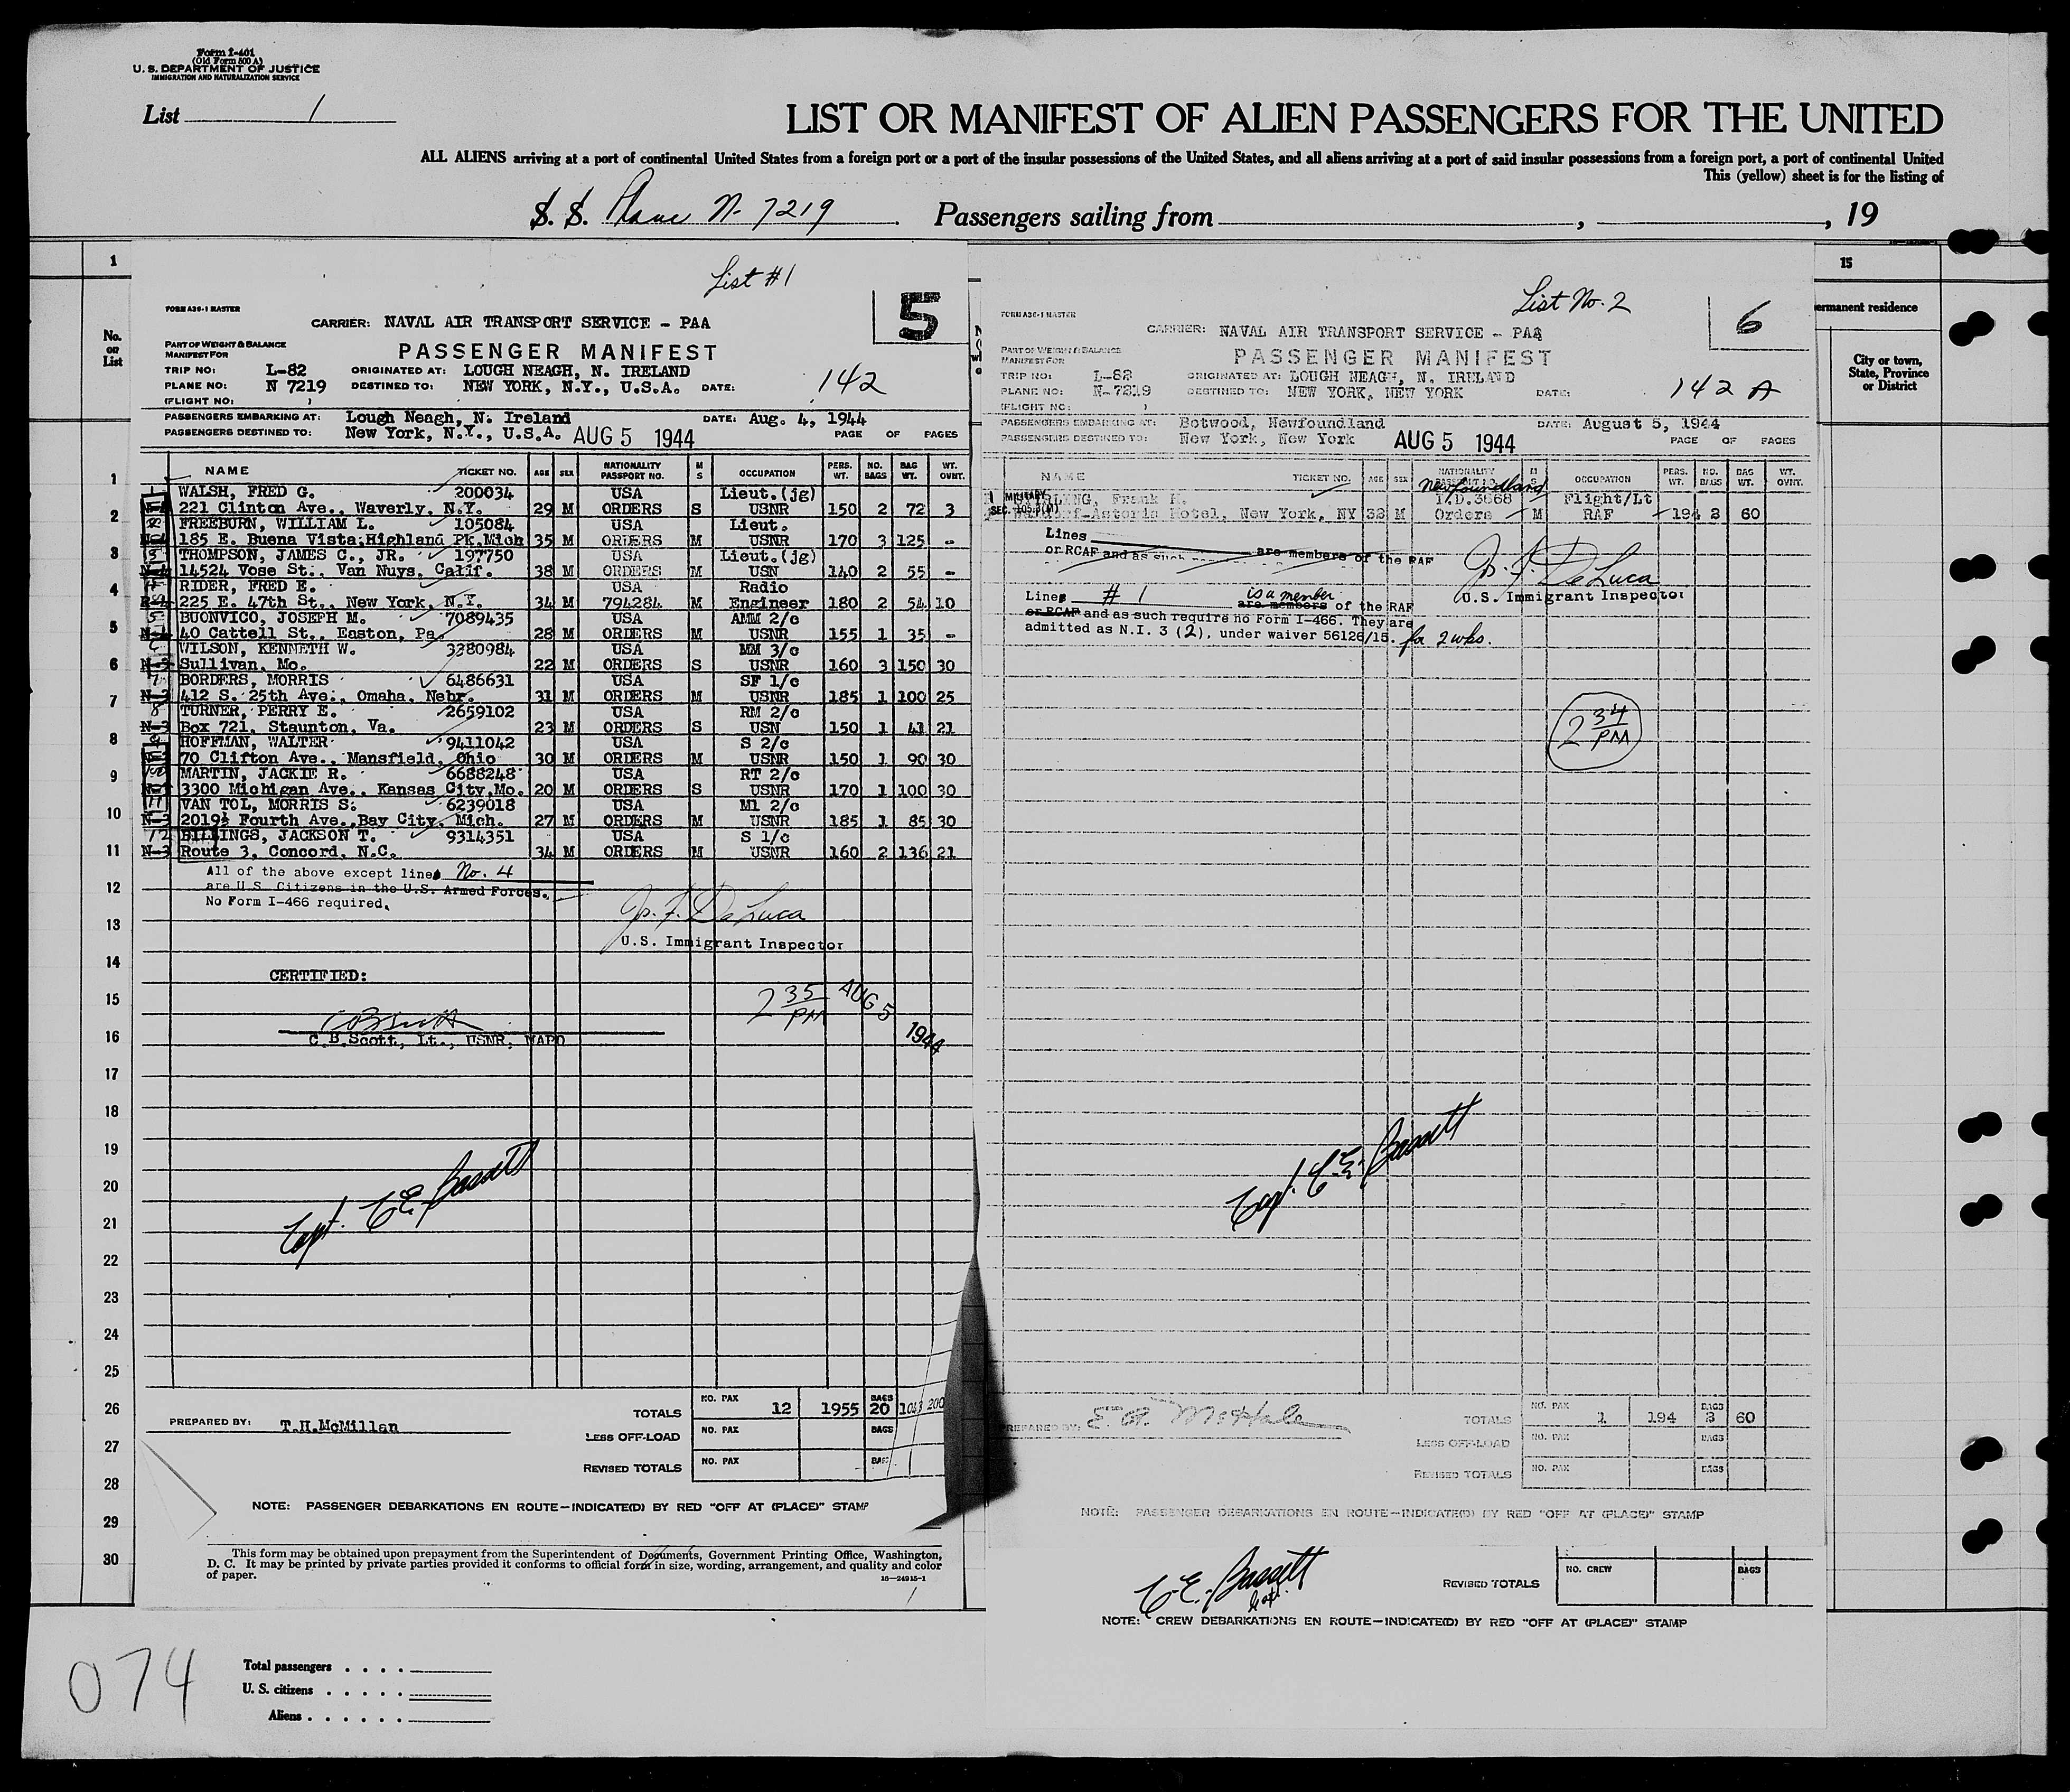 Form I-461
(Old Form 500 A)
U. S. DEPARTMENT OF JUSTICE
IMMIGRATION AND NATURALIZATION SERVICE
List 1
LIST OR MANIFEST OF ALIEN PASSENGERS FOR THE UNITED
ALL ALIENS arriving at a port of continental United States from a foreign port or a port of the insular possessions of the United States, and all aliens arriving at a port of said insular possessions from a foreign port, a port of continental United
This (yellow) sheet is for the listing of
S. S. Plane N-7219 Passengers sailing from , , 19
1
No. on List
List #1
5
FORM A30-1 MASTER
CARRIER: NAVAL AIR TRANSPORT SERVICE - PAA
PART OF WEIGHT & BALANCE
MANIFEST FOR
PASSENGER MANIFEST
TRIP NO: L-82 ORIGINATED AT: LOUGH NEAGH, N. IRELAND
PLANE NO: N 7219 DESTINED TO: NEW YORK, N.Y., U.S.A. DATE: 142
(FLIGHT NO: )
PASSENGERS EMBARKING AT: Lough Neagh, N. Ireland DATE: Aug. 4, 1944
PASSENGERS DESTINED TO: New York, N.Y., U.S.A. AUG 5 1944 PAGE OF PAGES
NAME TICKET NO. AGE SEX NATIONALITY PASSPORT NO. M S OCCUPATION PERS. WT. NO. BAGS BAG WT. WT. OVNT.
WALSH, FRED G. 200034 USA Lieut.(jg)
221 Clinton Ave., Waverly, N.Y. 29 M ORDERS S USNR 150 2 72 3
FREEBURN, WILLIAM L. 105084 USA Lieut.
185 E. Buena Vista,Highland Pk.Mich 35 M ORDERS M USNR 170 3 125 -
THOMPSON, JAMES C., JR. 197750 USA Lieut.(jg)
14524 Vose St., Van Nuys, Calif. 38 M ORDERS M USN 140 2 55 -
RIDER, FRED E. USA Radio
225 E. 47th St., New York, N.Y. 34 M 794284 M Engineer 180 2 54 10
BUONVICO, JOSEPH M. 7089435 USA AMM 2/c
40 Cattell St., Easton, Pa. 28 M ORDERS M USNR 155 1 35 -
WILSON, KENNETH W. 3380984 USA MM 3/c
Sullivan, Mo. 22 M ORDERS S USNR 160 3 150 30
BORDERS, MORRIS 6486631 USA SF 1/c
412 S. 25th Ave., Omaha, Nebr. 31 M ORDERS M USNR 185 1 100 25
TURNER, PERRY E. 2659102 USA RM 2/c
Box 721, Staunton, Va. 23 M ORDERS S USN 150 1 41 21
HOFFMAN, WALTER 9411042 USA S 2/c
70 Clifton Ave., Mansfield, Ohio 30 M ORDERS M USNR 150 1 90 30
MARTIN, JACKIE R. 6688248 USA RT 2/c
3300 Michigan Ave., Kansas City,Mo. 20 M ORDERS S USNR 170 1 100 30
VAN TOL, MORRIS S. 6239018 USA M1 2/c
2019½ Fourth Ave.,Bay City, Mich. 27 M ORDERS M USNR 185 1 85 30
12 BILLINGS, JACKSON T. 9314351 USA S 1/c
N-3 Route 3, Concord, N.C. 34 M ORDERS M USNR 160 2 136 21
All of the above except line No. 4
are U.S. Citizens in the U.S. Armed Forces.
No Form I-466 required.
Jos. F. DeLuca
U.S. Immigrant Inspector
CERTIFIED:
2 35 PM AUG 5 1944
CBScott
C.B.Scott, Lt., USNR, NAPD
Capt. C.E. Bassett
TOTALS NO. PAX 12 1955 BAGS 20 1043 200
PREPARED BY: T.H.McMillan
LESS OFF-LOAD NO. PAX BAGS
REVISED TOTALS NO. PAX BAGS
NOTE: PASSENGER DEBARKATIONS EN ROUTE—INDICATE(D) BY RED "OFF AT (PLACE)" STAMP
This form may be obtained upon prepayment from the Superintendent of Documents, Government Printing Office, Washington,
D. C. It may be printed by private parties provided it conforms to official form in size, wording, arrangement, and quality and color
of paper. 16—24915-1
1
2
3
4
5
6
7
8
9
10
11
12
13
14
15
16
17
18
19
20
21
22
23
24
25
26
27
28
29
30
List No. 2
6
FORM A30-1 MASTER
CARRIER: NAVAL AIR TRANSPORT SERVICE - PAA
PART OF WEIGHT & BALANCE
MANIFEST FOR
PASSENGER MANIFEST
TRIP NO: L-82 ORIGINATED AT: LOUGH NEAGH, N. IRELAND
PLANE NO: N-7219 DESTINED TO: NEW YORK, NEW YORK DATE: 142 A
(FLIGHT NO: )
PASSENGERS EMBARKING AT: Botwood, Newfoundland DATE: August 5, 1944
PASSENGERS DESTINED TO: New York, New York AUG 5 1944 PAGE OF PAGES
NAME TICKET NO. AGE SEX NATIONALITY PASSPORT NO. M S OCCUPATION PERS. WT. NO. BAGS BAG WT. WT. OVNT.
Newfoundland
1 MILITARY Frank I.D.3668 Flight/Lt
SEC. Waldorf-Astoria Hotel, New York, NY 32 M Orders M RAF 194 3 60
Lines are members of the RAF
or RCAF and as such
Jos. F. DeLuca
U.S. Immigrant Inspector
Lines # 1 is a member are members of the RAF
or RCAF and as such require no Form I-466. They are
admitted as N.I. 3 (2), under waiver 56126/15. for 2 wks.
2 34 PM
Capt. C.E. Bassett
TOTALS NO. PAX 1 194 BAGS 3 60
PREPARED BY: E. A. McHale
LESS OFF-LOAD NO. PAX BAGS
REVISED TOTALS NO. PAX BAGS
NOTE: PASSENGER DEBARKATIONS EN ROUTE—INDICATE(D) BY RED "OFF AT (PLACE)" STAMP
C.E. Bassett
Capt.
REVISED TOTALS NO. CREW BAGS
NOTE: CREW DEBARKATIONS EN ROUTE—INDICATE(D) BY RED "OFF AT (PLACE)" STAMP
15
ermanent residence
City or town,
State, Province
or District
074
Total passengers
U. S. citizens
Aliens